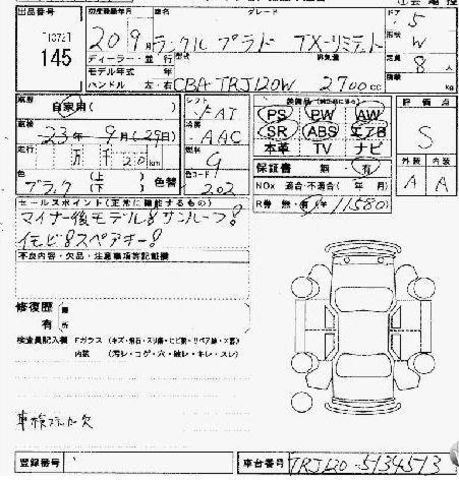 出品番号 初度登録年月 車名 グレード ドア
145 20 9月 ランクル プラド TX-リミテッド 5
ディーラー・並行 形状 W
モデル年式 年 型式 排気量 定員 8人
ハンドル 左・右 CBA-TRJ120W 2700cc 積載量 kg
車歴 自家用( ) シフト FAT 装備品 評価点
車検 23年 9月(29日) 冷房 AAC PS PW AW S
走行 万 千20km 燃料 G SR ABS エアB
本革 TV ナビ 外装 内装
色 ブラック (上 下) 色替 色コード 202 保証書 無・有 A A
NOx 適合・不適合( 年 月)
セールスポイント(正常に機能するもの) R券 無・有 11580
マイナー後モデル!サンルーフ!
イモビ!スペアキー!
不良内容・欠品・注意事項等記載欄
修復歴 無
有 所
検査員記入欄 Fガラス (キズ・飛石・スリ傷・ヒビ割・リペア跡・X要)
内装 (汚レ・コゲ・穴・破レ・キレ・スレ)
登録番号 車台番号 TRJ120-5134513